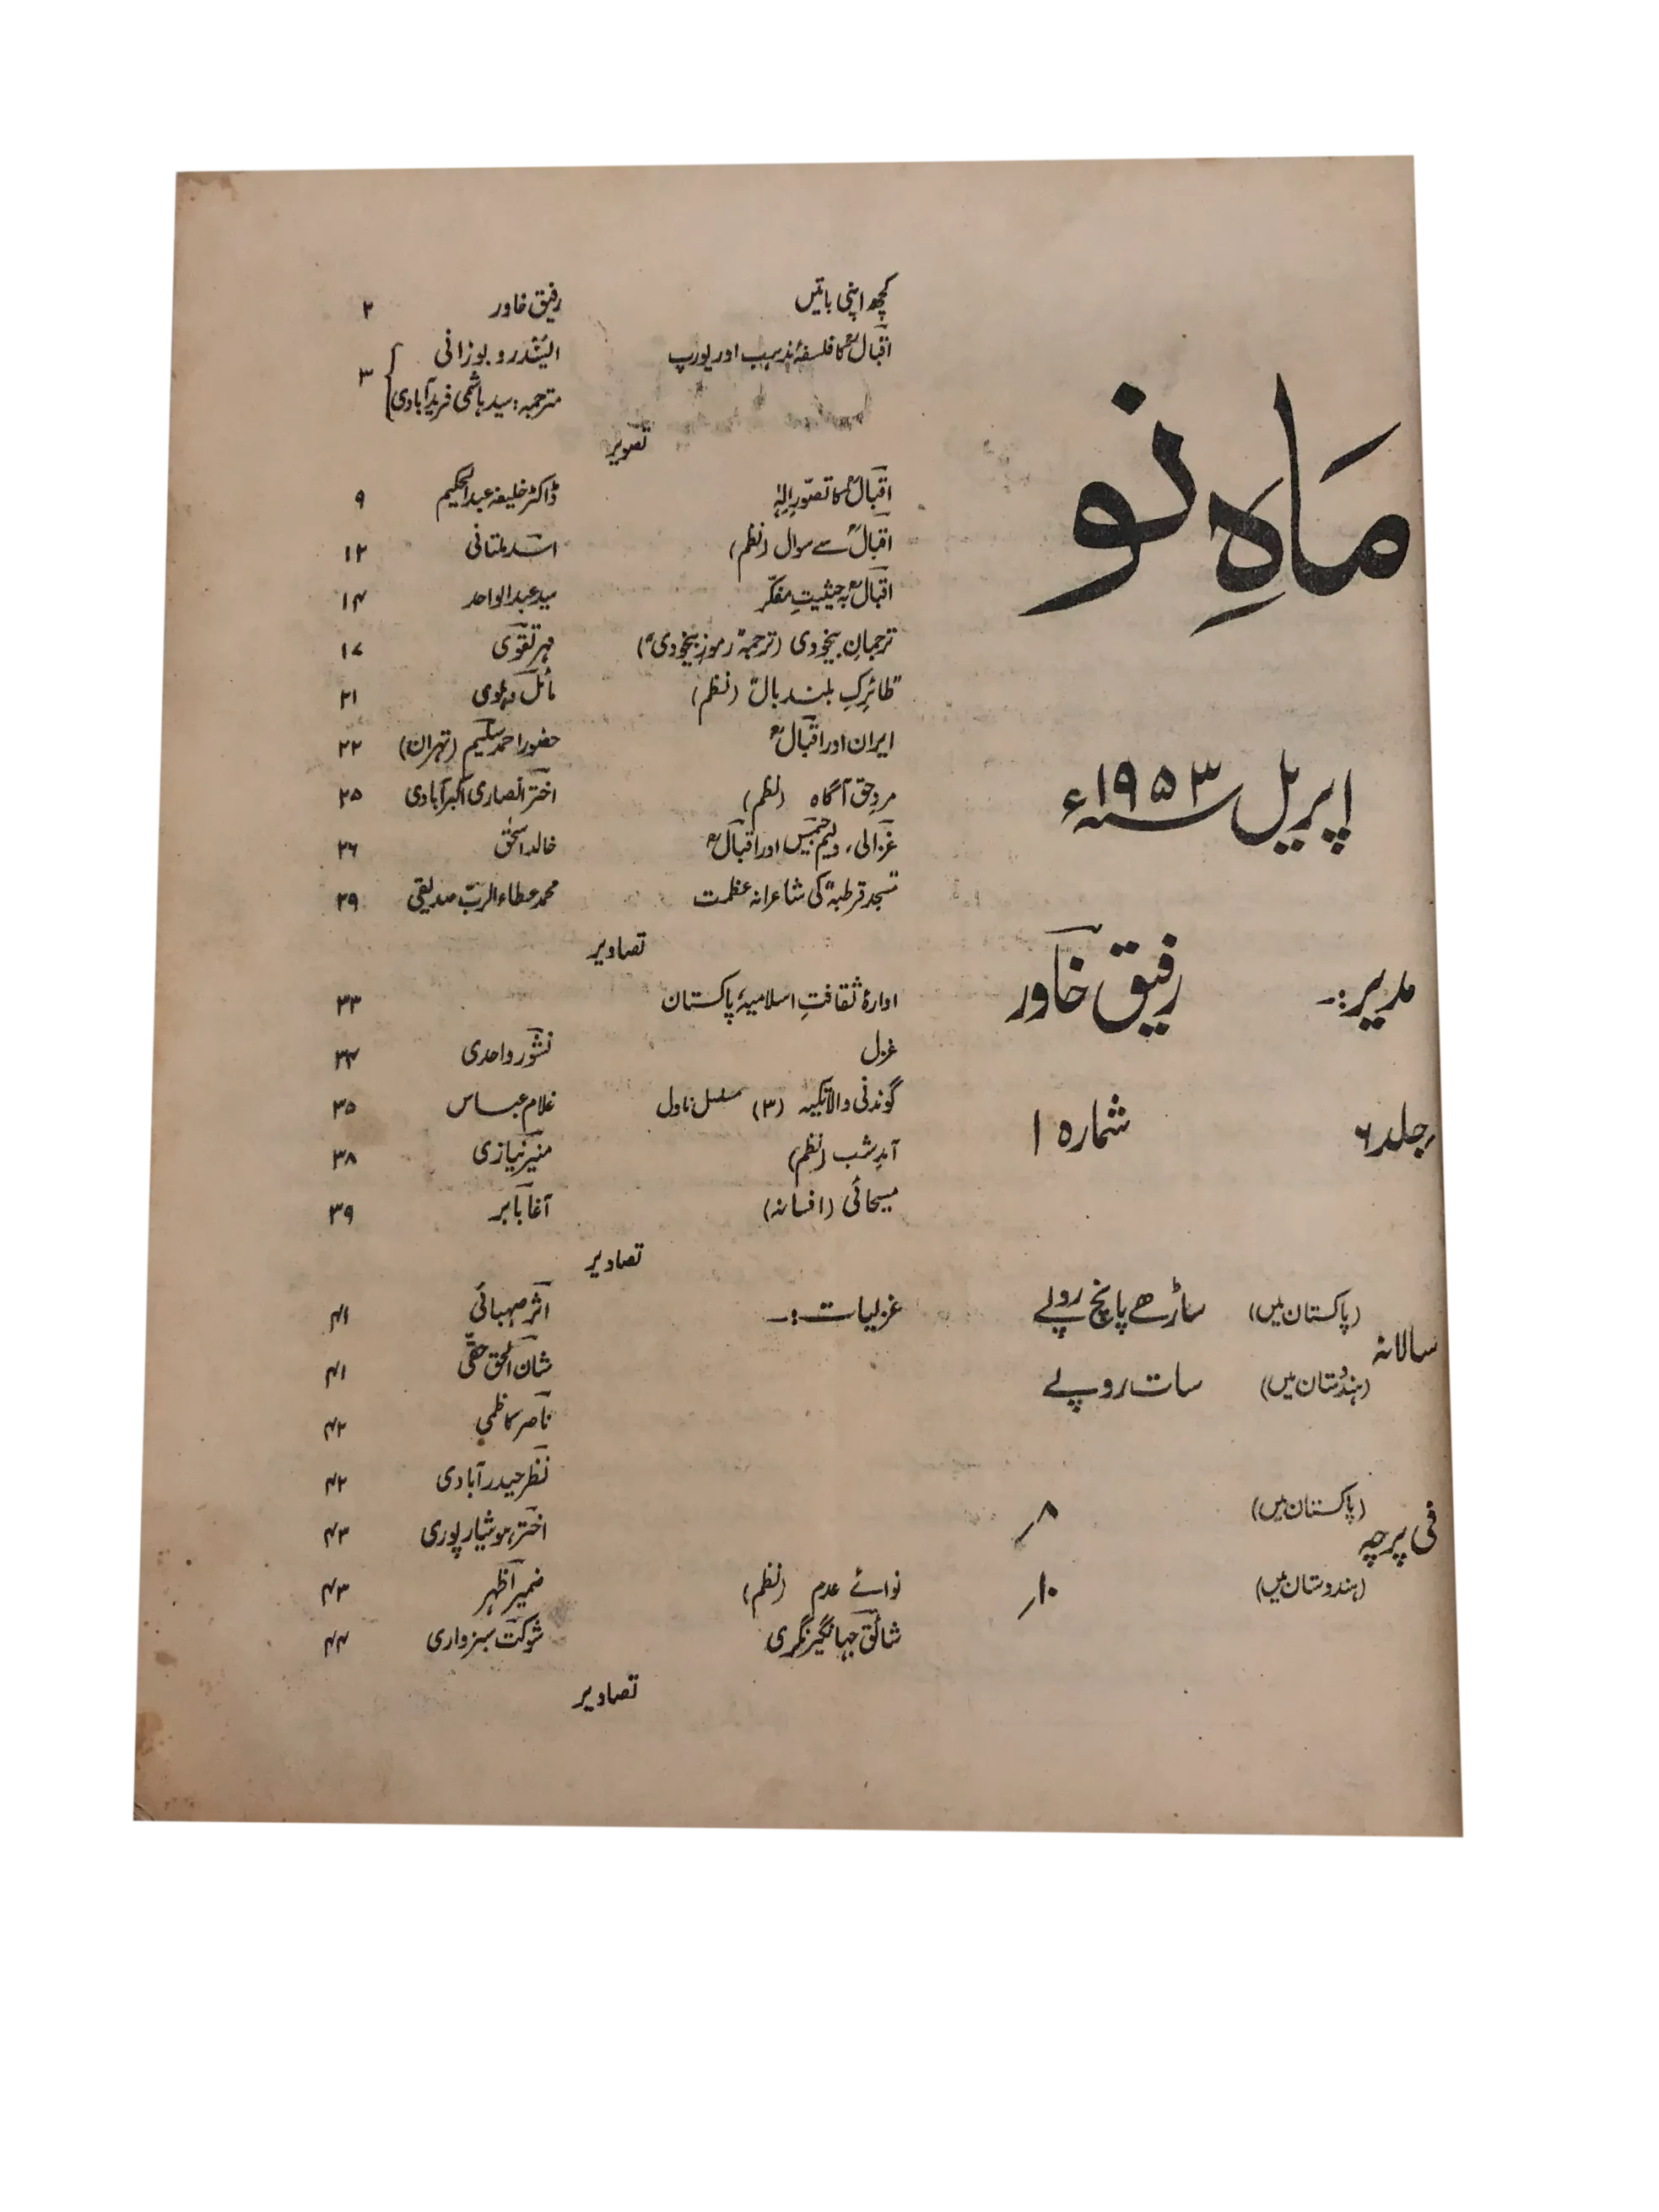 ماہِ نو
اپریل ۱۹۵۳ء
مدیر:۔ رفیق خاور
جلد ۶ شمارہ ۱
سالانہ
(پاکستان میں) ساڑھے پانچ روپے
(ہندُستان میں) سات روپے
فی پرچہ
(پاکستان میں) ۸؍
(ہندوستان میں) ۱۰؍
کچھ اپنی باتیں رفیق خاور ۲
اقبالؒ کا فلسفۂ مذہب اور یورپ الیسّندرو بوزانی ۳
مترجمہ: سید ہاشمی فریدآبادی
تصویر
اقبالؒ کا تصوّرِ الٰہ ڈاکٹر خلیفہ عبدالحکیم ۹
اقبالؒ سے سوال (نظم) اسد ملتانی ۱۲
اقبالؒ بہ حیثیتِ مفکّر سید عبدالواحد ۱۴
ترجمانِ بیخودی (ترجمہ "رموزِ بیخودی") مہر تقوی ۱۷
"طائرکِ بلند بال" (نظم) مائل دہلوی ۲۱
ایران اور اقبالؒ حضور احمد سلیم (تہران) ۲۲
مردِ حق آگاہ (نظم) اختر انصاری اکبرآبادی ۲۵
غزالی، ولیم جیمس اور اقبالؒ خالد اسحٰق ۲۶
"مسجد قرطبہ" کی شاعرانہ عظمت محمد عطاء الربّ صدیقی ۲۹
تصاویر
ادارۂ ثقافتِ اسلامیۂ پاکستان ۳۳
غزل نشور واحدی ۳۴
گوندنی والا تکیہ (۳) مسلسل ناول غلام عباس ۳۵
آمدِ شب (نظم) منیر نیازی ۳۸
مسیحائی (افسانہ) آغا بابر ۳۹
تصاویر
غزلیات:۔ اثر صہبائی ۴۱
شان الحق حقّی ۴۱
ناصر کاظمی ۴۲
نظر حیدرآبادی ۴۲
اختر ہوشیارپوری ۴۳
نوائے عدم (نظم) ضمیر اظہر ۴۳
شائق جہانگیرنگری شوکت سبزواری ۴۴
تصاویر